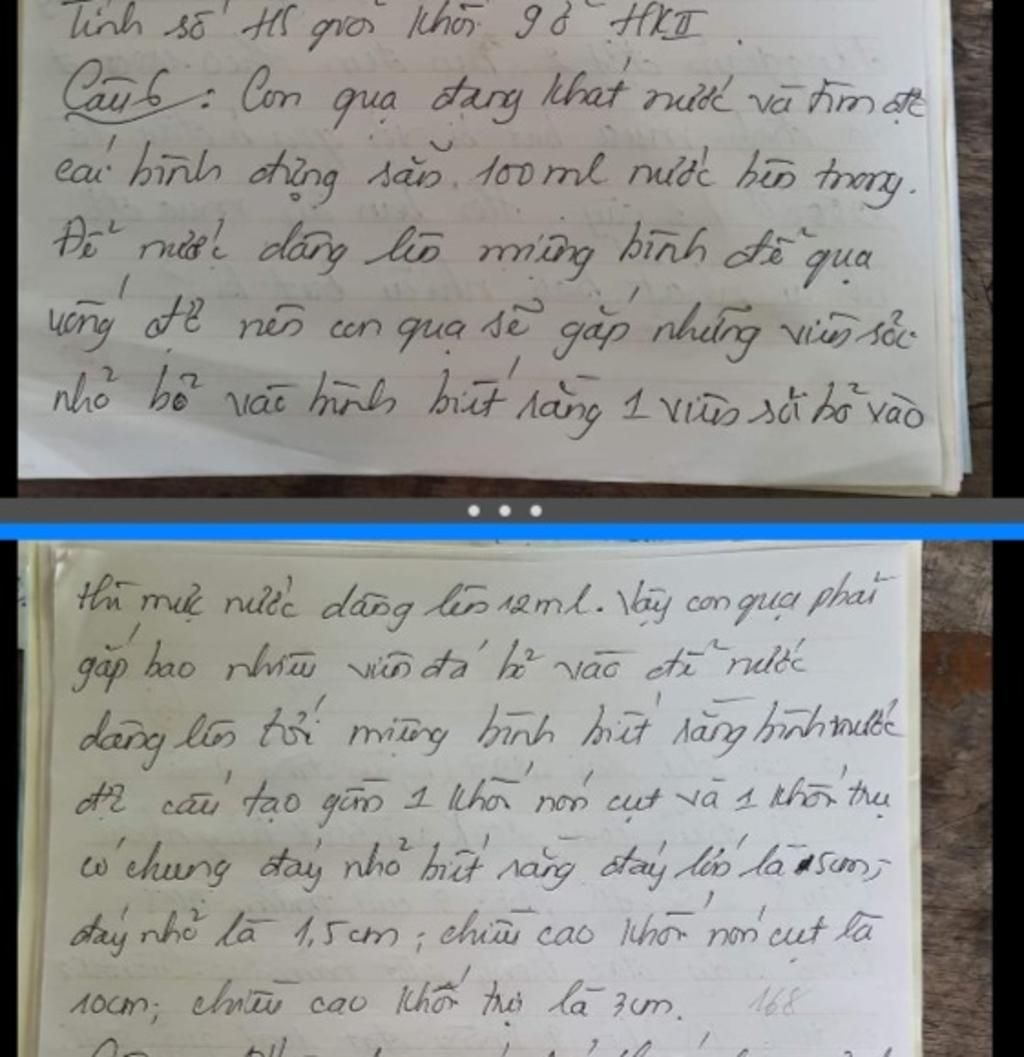 Tính số HS giỏi khối 9 ở HKII.
Câu 6: Con quạ đang khát nước và tìm đc
cái bình đựng sẵn 100ml nước bên trong.
Để nước dâng lên miệng bình để quạ
uống đc nên con quạ sẽ gắp những viên sỏi
nhỏ bỏ vào bình biết rằng 1 viên sỏi bỏ vào
thì mực nước dâng lên 12ml. Vậy con quạ phải
gắp bao nhiêu viên đá bỏ vào để nước
dâng lên tới miệng bình biết rằng bình nước
đc cấu tạo gồm 1 khối nón cụt và 1 khối trụ
có chung đáy nhỏ biết rằng đáy lớn là 5cm;
đáy nhỏ là 1,5cm; chiều cao khối nón cụt là
10cm; chiều cao khối trụ là 3cm. 168